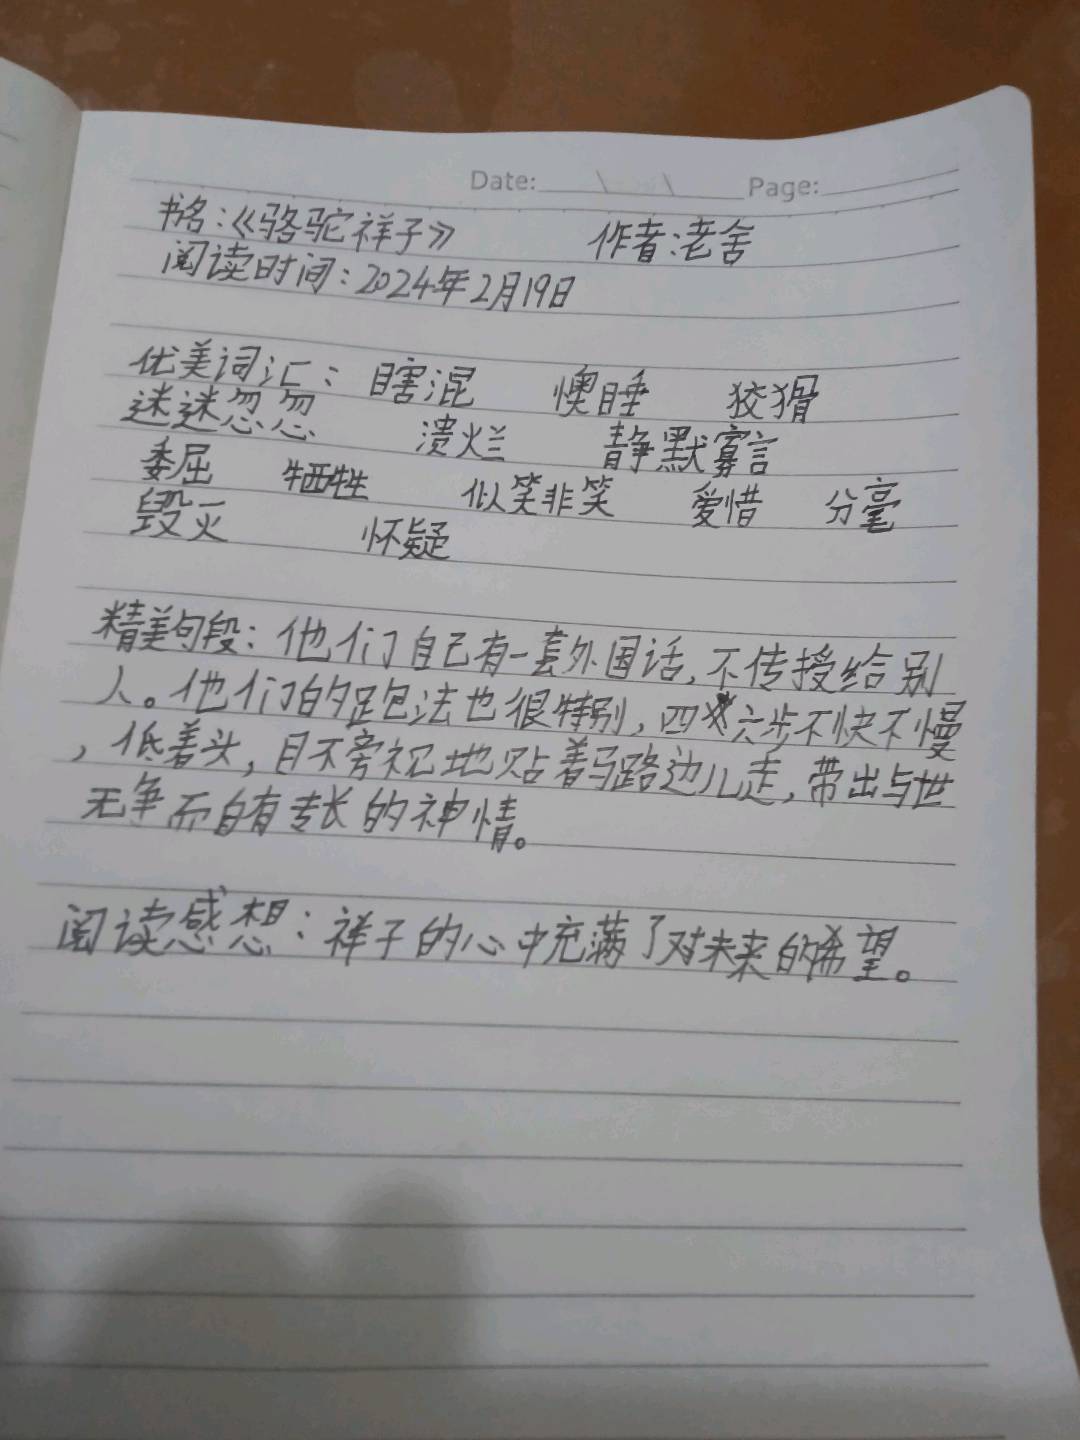 Date: \ \ Page:
书名:《骆驼祥子》 作者:老舍
阅读时间:2024年2月19日
优美词汇: 瞎混 懊睡 狡猾
迷迷忽忽 溃烂 静默寡言
委屈 牺牲 似笑非笑 爱惜 分毫
毁灭 怀疑
精美句段:他们自己有一套外国话,不传授给别
人。他们的跑法也很特别,四六步不快不慢
,低着头,目不旁视地贴着马路边儿走,带出与世
无争而自有专长的神情。
阅读感想:祥子的心中充满了对未来的希望。